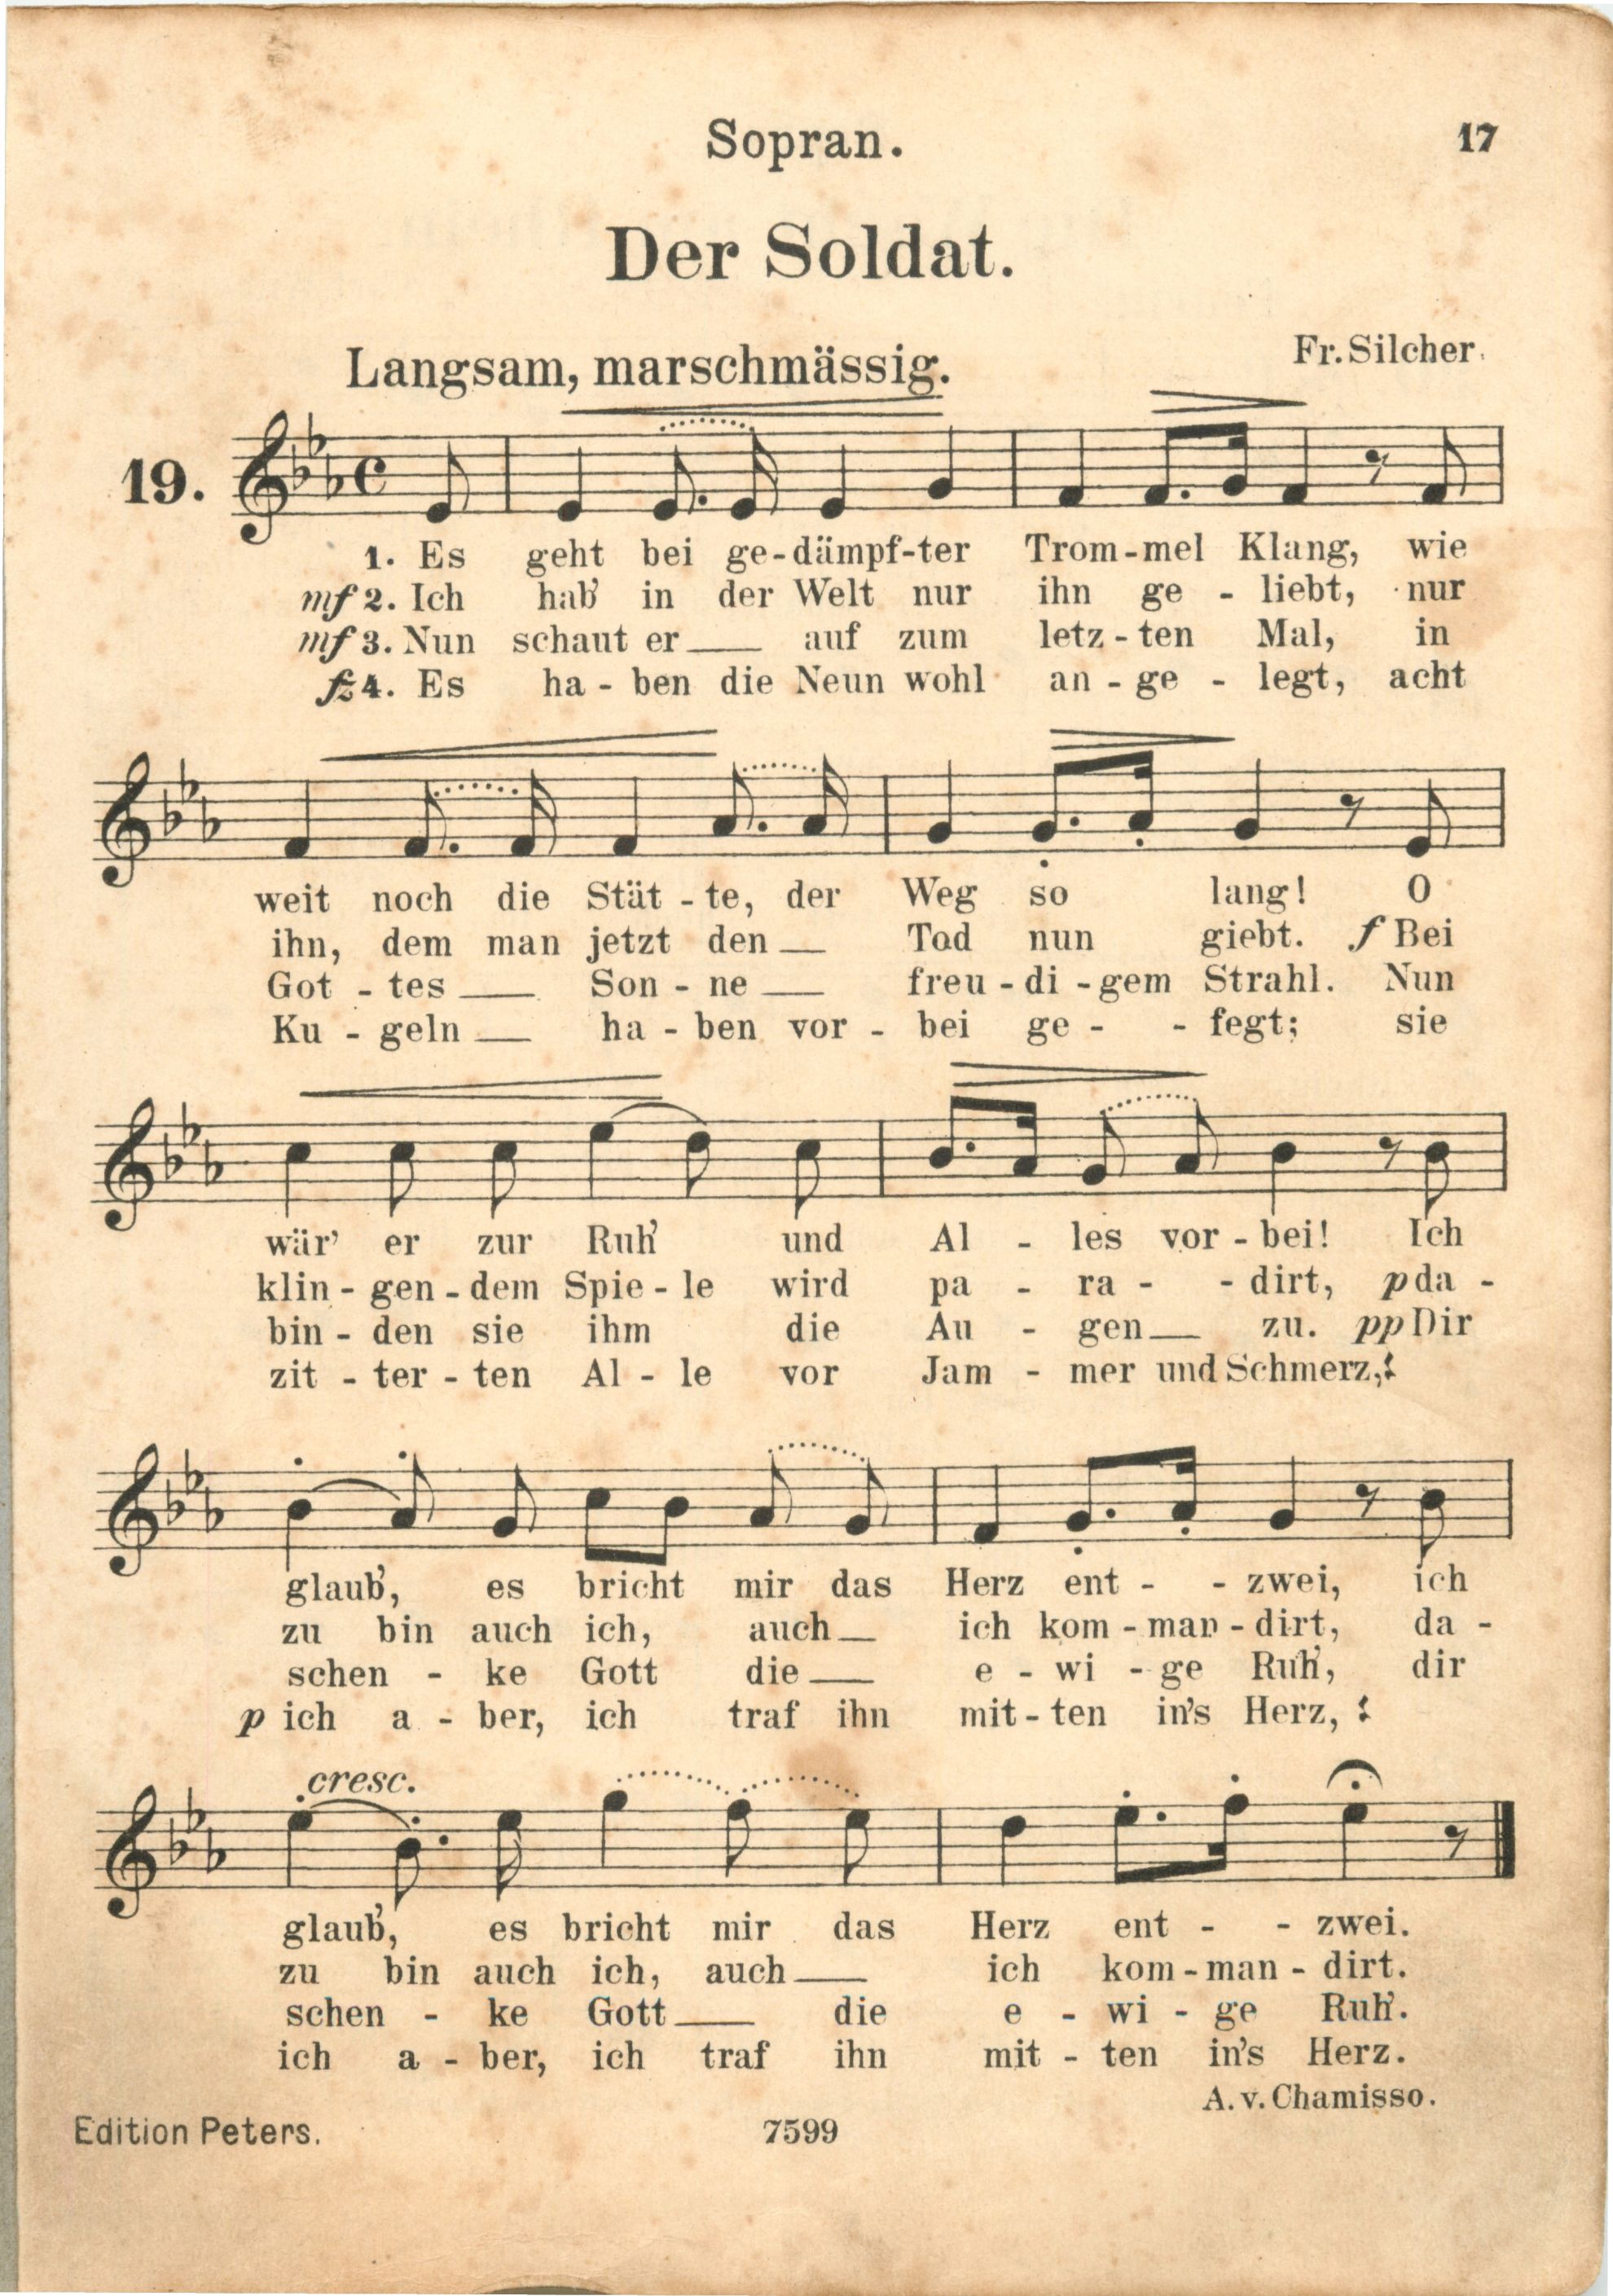 Sopran.
17
Der Soldat.
Langsam, marschmässig.
Fr. Silcher.
19.
1. Es geht bei ge-dämpf-ter Trom-mel Klang, wie
mf 2. Ich hab' in der Welt nur ihn ge - liebt, nur
mf 3. Nun schaut er auf zum letz - ten Mal, in
fz 4. Es ha - ben die Neun wohl an - ge - legt, acht
weit noch die Stät - te, der Weg so lang! O
ihn, dem man jetzt den Tod nun giebt. f Bei
Got - tes Son - ne freu - di - gem Strahl. Nun
Ku - geln ha - ben vor - bei ge - - fegt; sie
wär' er zur Ruh' und Al - les vor - bei! Ich
klin - gen - dem Spie - le wird pa - ra - - dirt, p da -
bin - den sie ihm die Au - gen zu. pp Dir
zit - ter - ten Al - le vor Jam - mer und Schmerz,
glaub', es bricht mir das Herz ent - - zwei, ich
zu bin auch ich, auch ich kom - man - dirt, da -
schen - ke Gott die e - wi - ge Ruh', dir
p ich a - ber, ich traf ihn mit - ten in's Herz,
cresc.
glaub', es bricht mir das Herz ent - - zwei.
zu bin auch ich, auch ich kom - man - dirt.
schen - ke Gott die e - wi - ge Ruh'.
ich a - ber, ich traf ihn mit - ten in's Herz.
A. v. Chamisso.
Edition Peters.
7599